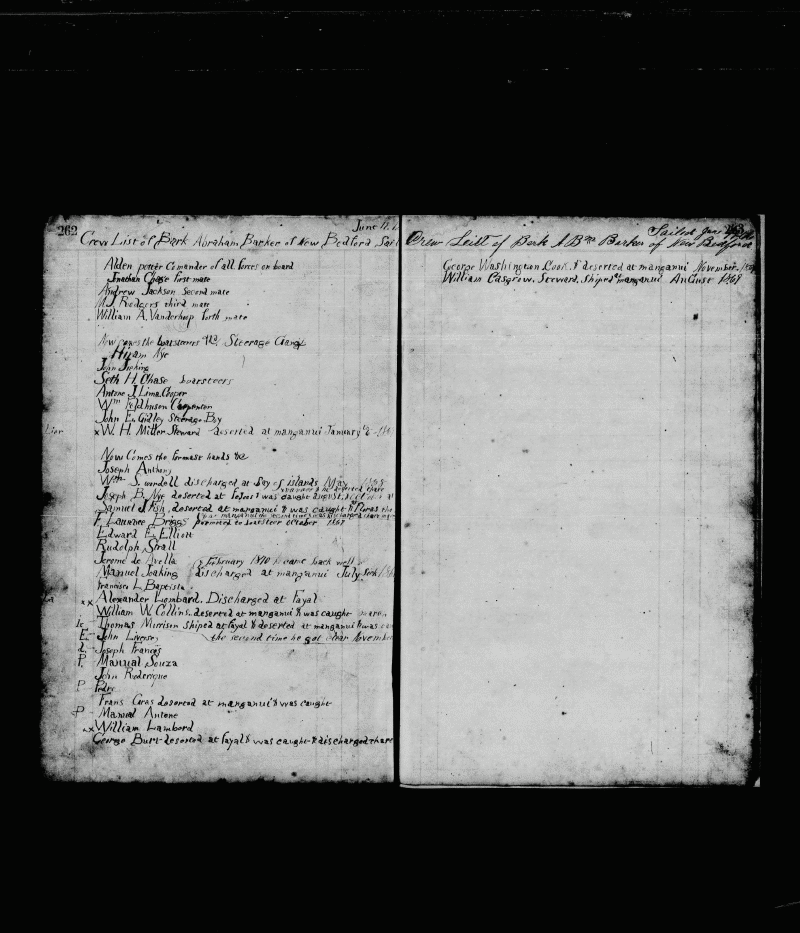 262
June 11
Crew List of Bark Abraham Barker of New Bedford
Alden potter Comander of all forces on board
Jonathan Chase first mate
Andrew Jackson Second mate
Rodgers third mate
William A. Vanderhoop forth mate
Now comes the boatsteerers Steerage
Hiram Nye
John
Seth H. Chase boatsteers
Antone J Lima Cooper
Wm Carpenter
John E. Gidley Steerage Boy
x W. H. Miller Steward deserted at manganui January
Now Comes the formast hands &c
Joseph Anthony
Wm discharged at Bay of islands May 1868
Joseph B. Nye deserted at & was caught August
Samuel J Fish, deserted at manganui & was caught the
F Lawrence Briggs promoted to boatsteer October 1869
Edward E. Elliott
Rudolph Strall
Jerome de Avella February 1870 came back well
Manuel Joaking discharged at manganui July
Francisco L Baptista
x Alexander Lombard. Discharged at Fayal
William W. Collins. deserted at manganui & was caught
Thomas Murrison shiped at Fayal & deserted at manganui & was
E John the second time he got clear November
Joseph Francis
P. Manual Souza
John Roderique
P Pedro
Frans deserted at manganui & was caught
P Manuel Antone
x William Lambord
George Burt deserted at Fayal & was caught & discharged there
Sailed June
Crew List of Bark Abm Barker of New Bedford
George Washington Cook. & deserted at manganui November
William Casgrow. Steward, Shiped at manganui August 1869